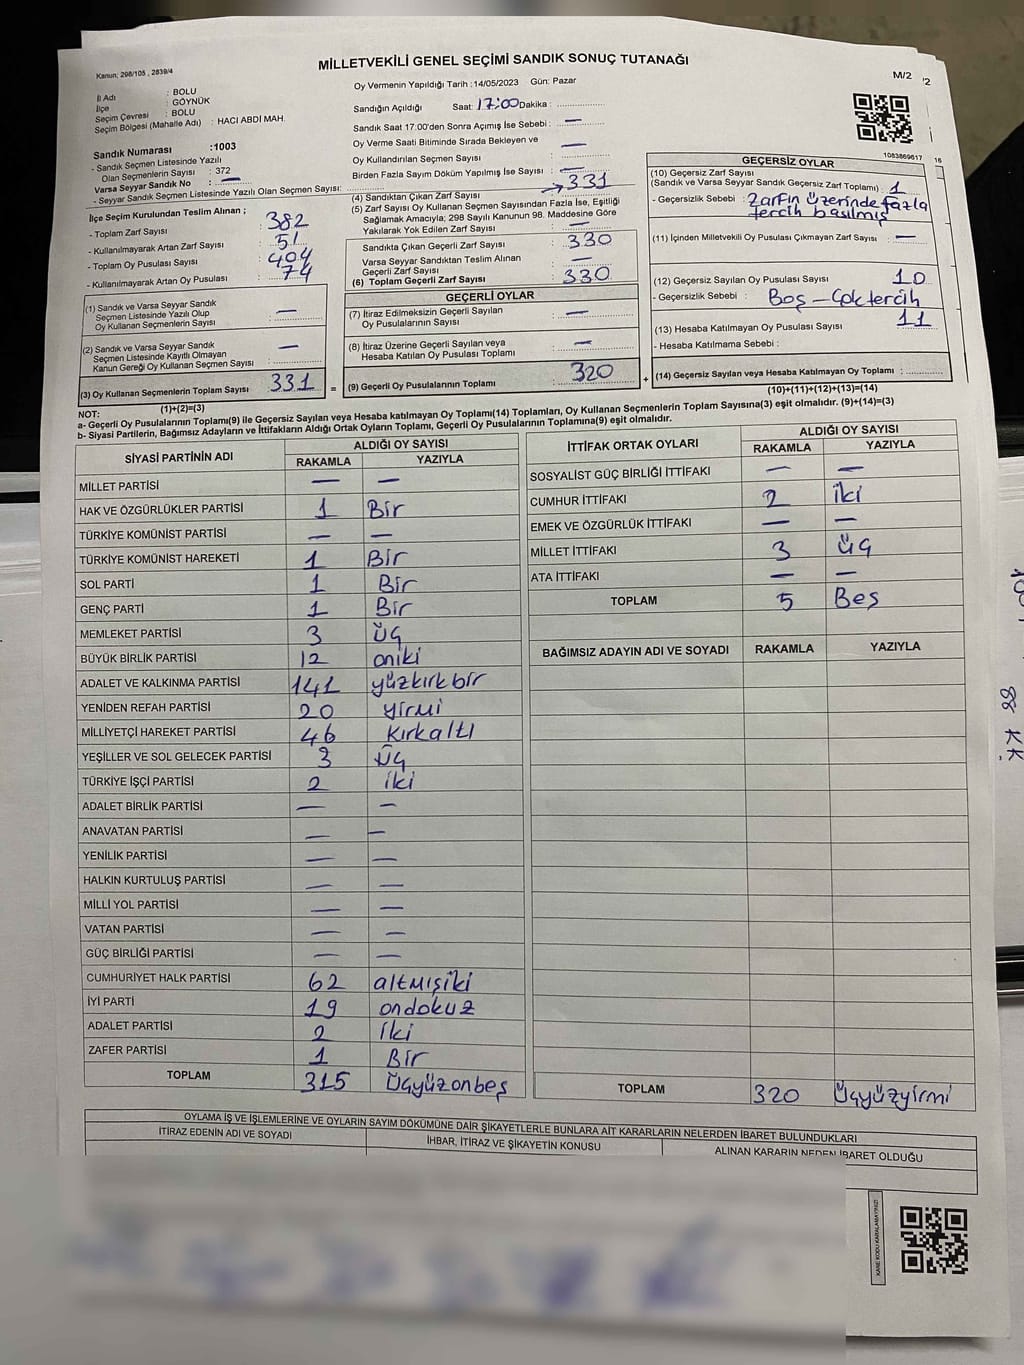 Kanun: 298/105 , 2839/4
MİLLETVEKİLİ GENEL SEÇİMİ SANDIK SONUÇ TUTANAĞI
M/2
İl Adı : BOLU
İlçe : GÖYNÜK
Seçim Çevresi : BOLU
Seçim Bölgesi (Mahalle Adı) : HACI ABDİ MAH.
Sandık Numarası :1003
- Sandık Seçmen Listesinde Yazılı
Olan Seçmenlerin Sayısı : 372
Varsa Seyyar Sandık No : —
- Seyyar Sandık Seçmen Listesinde Yazılı Olan Seçmen Sayısı: ...............
Oy Vermenin Yapıldığı Tarih :14/05/2023 Gün: Pazar
Sandığın Açıldığı Saat: 17:00 Dakika : ...............
Sandık Saat 17:00'den Sonra Açımış İse Sebebi : —
Oy Verme Saati Bitiminde Sırada Bekleyen ve
Oy Kullandırılan Seçmen Sayısı —
Birden Fazla Sayım Döküm Yapılmış İse Sayısı : —
İlçe Seçim Kurulundan Teslim Alınan ;
- Toplam Zarf Sayısı : 382
- Kullanılmayarak Artan Zarf Sayısı : 51
- Toplam Oy Pusulası Sayısı : 404
- Kullanılmayarak Artan Oy Pusulası : 74
(1) Sandık ve Varsa Seyyar Sandık
Seçmen Listesinde Yazılı Olup
Oy Kullanan Seçmenlerin Sayısı —
(2) Sandık ve Varsa Seyyar Sandık
Seçmen Listesinde Kayıtlı Olmayan
Kanun Gereği Oy Kullanan Seçmen Sayısı —
(3) Oy Kullanan Seçmenlerin Toplam Sayısı 331 =
(1)+(2)=(3)
(4) Sandıktan Çıkan Zarf Sayısı → 331
(5) Zarf Sayısı Oy Kullanan Seçmen Sayısından Fazla İse, Eşitliği
Sağlamak Amacıyla; 298 Sayılı Kanunun 98. Maddesine Göre
Yakılarak Yok Edilen Zarf Sayısı —
Sandıkta Çıkan Geçerli Zarf Sayısı 330
Varsa Seyyar Sandıktan Teslim Alınan
Geçerli Zarf Sayısı —
(6) Toplam Geçerli Zarf Sayısı 330
GEÇERLİ OYLAR
(7) İtiraz Edilmeksizin Geçerli Sayılan
Oy Pusulalarının Sayısı —
(8) İtiraz Üzerine Geçerli Sayılan veya
Hesaba Katılan Oy Pusulası Toplamı —
(9) Geçerli Oy Pusulalarının Toplamı 320 +
1083869617
GEÇERSİZ OYLAR
(10) Geçersiz Zarf Sayısı
(Sandık ve Varsa Seyyar Sandık Geçersiz Zarf Toplamı) : 1
- Geçersizlik Sebebi : Zarfın üzerinde fazla
tercih basılmış
(11) İçinden Milletvekili Oy Pusulası Çıkmayan Zarf Sayısı : —
(12) Geçersiz Sayılan Oy Pusulası Sayısı : 10
- Geçersizlik Sebebi : Boş — Çok tercih
(13) Hesaba Katılmayan Oy Pusulası Sayısı : 11
- Hesaba Katılmama Sebebi :
(14) Geçersiz Sayılan veya Hesaba Katılmayan Oy Toplamı : ...............
(10)+(11)+(12)+(13)=(14)
NOT:
a- Geçerli Oy Pusulalarının Toplamı(9) ile Geçersiz Sayılan veya Hesaba katılmayan Oy Toplamı(14) Toplamları, Oy Kullanan Seçmenlerin Toplam Sayısına(3) eşit olmalıdır. (9)+(14)=(3)
b- Siyasi Partilerin, Bağımsız Adayların ve İttifakların Aldığı Ortak Oyların Toplamı, Geçerli Oy Pusulalarının Toplamına(9) eşit olmalıdır.
SİYASİ PARTİNİN ADI ALDIĞI OY SAYISI
RAKAMLA YAZIYLA
MİLLET PARTİSİ — —
HAK VE ÖZGÜRLÜKLER PARTİSİ 1 Bir
TÜRKİYE KOMÜNİST PARTİSİ — —
TÜRKİYE KOMÜNİST HAREKETİ 1 Bir
SOL PARTİ 1 Bir
GENÇ PARTİ 1 Bir
MEMLEKET PARTİSİ 3 üç
BÜYÜK BİRLİK PARTİSİ 12 oniki
ADALET VE KALKINMA PARTİSİ 141 yüzkırkbir
YENİDEN REFAH PARTİSİ 20 yirmi
MİLLİYETÇİ HAREKET PARTİSİ 46 Kırkaltı
YEŞİLLER VE SOL GELECEK PARTİSİ 3 üç
TÜRKİYE İŞÇİ PARTİSİ 2 iki
ADALET BİRLİK PARTİSİ — —
ANAVATAN PARTİSİ — —
YENİLİK PARTİSİ — —
HALKIN KURTULUŞ PARTİSİ — —
MİLLİ YOL PARTİSİ — —
VATAN PARTİSİ — —
GÜÇ BİRLİĞİ PARTİSİ — —
CUMHURİYET HALK PARTİSİ 62 altmışiki
İYİ PARTİ 19 ondokuz
ADALET PARTİSİ 2 iki
ZAFER PARTİSİ 1 Bir
TOPLAM 315 üçyüzonbeş
İTTİFAK ORTAK OYLARI ALDIĞI OY SAYISI
RAKAMLA YAZIYLA
SOSYALİST GÜÇ BİRLİĞİ İTTİFAKI — —
CUMHUR İTTİFAKI 2 iki
EMEK VE ÖZGÜRLÜK İTTİFAKI — —
MİLLET İTTİFAKI 3 üç
ATA İTTİFAKI — —
TOPLAM 5 Beş
BAĞIMSIZ ADAYIN ADI VE SOYADI RAKAMLA YAZIYLA
TOPLAM 320 üçyüzyirmi
OYLAMA İŞ VE İŞLEMLERİNE VE OYLARIN SAYIM DÖKÜMÜNE DAİR ŞİKAYETLERLE BUNLARA AİT KARARLARIN NELERDEN İBARET BULUNDUKLARI
İTİRAZ EDENİN ADI VE SOYADI İHBAR, İTİRAZ VE ŞİKAYETİN KONUSU ALINAN KARARIN NEDEN İBARET OLDUĞU
KARE KODU KARALAMAYINIZ!
88 KK